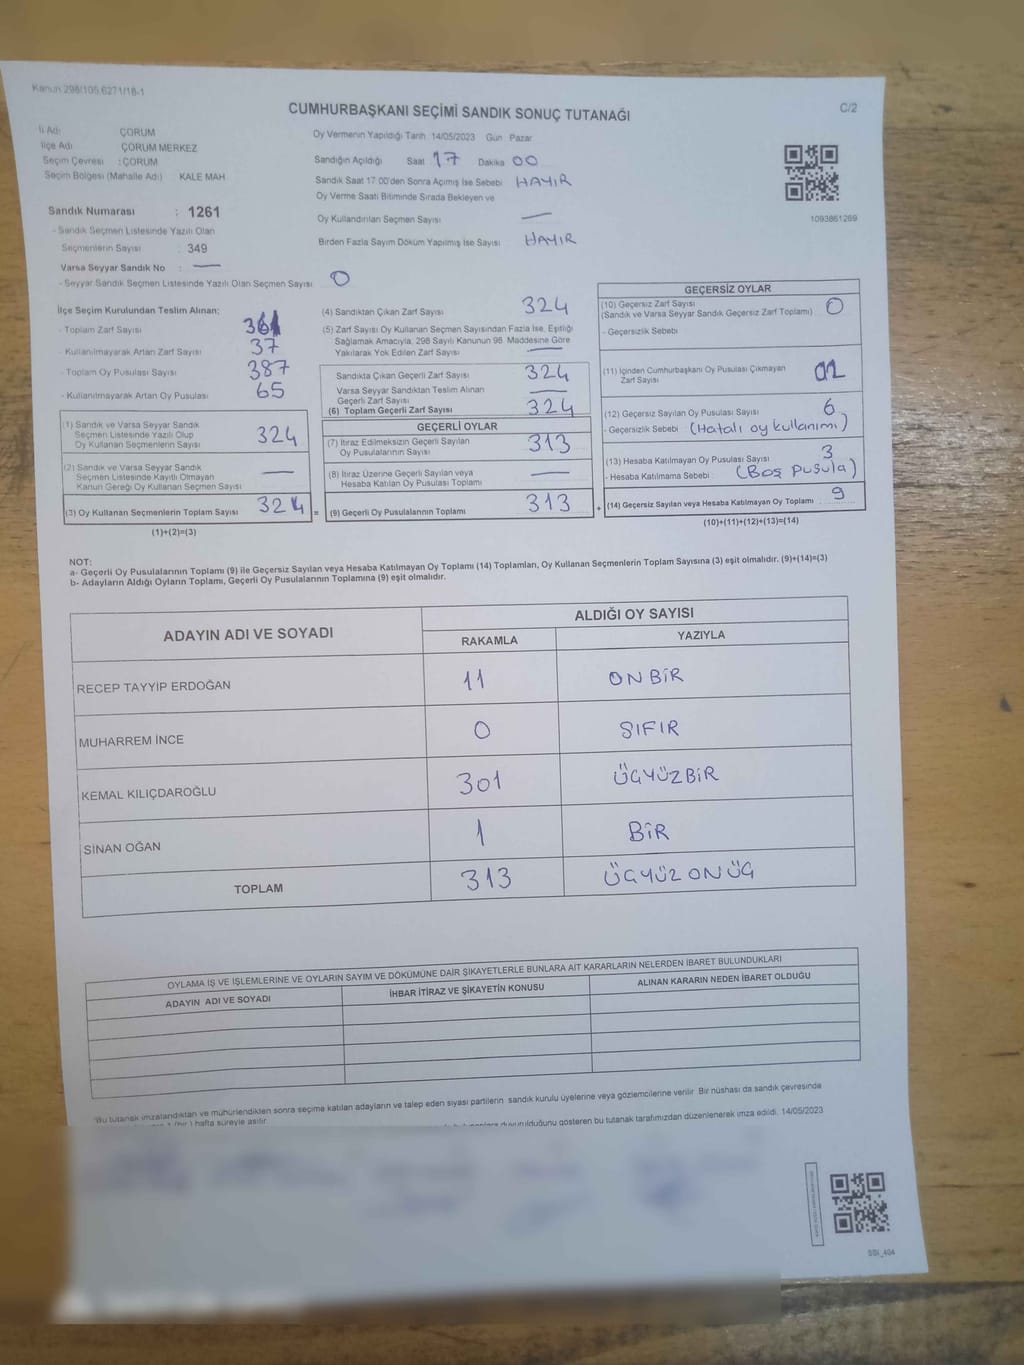 Kanun 298/105.6271/18-1
CUMHURBAŞKANI SEÇİMİ SANDIK SONUÇ TUTANAĞI
C/2
İl Adı ÇORUM
İlçe Adı ÇORUM MERKEZ
Seçim Çevresi : ÇORUM
Seçim Bölgesi (Mahalle Adı) KALE MAH
Oy Vermenin Yapıldığı Tarih 14/05/2023 Gün Pazar
Sandığın Açıldığı Saat 17 Dakika 00
Sandık Saat 17:00'den Sonra Açımış İse Sebebi HAYIR
Oy Verme Saati Bitiminde Sırada Bekleyen ve
Oy Kullandırılan Seçmen Sayısı —
Birden Fazla Sayım Döküm Yapılmış İse Sayısı HAYIR
1093861269
Sandık Numarası : 1261
- Sandık Seçmen Listesinde Yazılı Olan
Seçmenlerin Sayısı : 349
Varsa Seyyar Sandık No : —
- Seyyar Sandık Seçmen Listesinde Yazılı Olan Seçmen Sayısı 0
İlçe Seçim Kurulundan Teslim Alınan;
- Toplam Zarf Sayısı 361
- Kullanılmayarak Artan Zarf Sayısı 37
- Toplam Oy Pusulası Sayısı 387
- Kullanılmayarak Artan Oy Pusulası 65
(1) Sandık ve Varsa Seyyar Sandık
Seçmen Listesinde Yazılı Olup
Oy Kullanan Seçmenlerin Sayısı 324
(2) Sandık ve Varsa Seyyar Sandık
Seçmen Listesinde Kayıtlı Olmayan
Kanun Gereği Oy Kullanan Seçmen Sayısı —
(3) Oy Kullanan Seçmenlerin Toplam Sayısı 324 =
(1)+(2)=(3)
(4) Sandıktan Çıkan Zarf Sayısı 324
(5) Zarf Sayısı Oy Kullanan Seçmen Sayısından Fazla İse, Eşitliği
Sağlamak Amacıyla, 298 Sayılı Kanunun 98. Maddesine Göre
Yakılarak Yok Edilen Zarf Sayısı —
Sandıkta Çıkan Geçerli Zarf Sayısı 324
Varsa Seyyar Sandıktan Teslim Alınan
Geçerli Zarf Sayısı —
(6) Toplam Geçerli Zarf Sayısı 324
GEÇERLİ OYLAR
(7) İtiraz Edilmeksizin Geçerli Sayılan
Oy Pusulalarının Sayısı 313
(8) İtiraz Üzerine Geçerli Sayılan veya
Hesaba Katılan Oy Pusulası Toplamı —
(9) Geçerli Oy Pusulalarının Toplamı 313 +
GEÇERSİZ OYLAR
(10) Geçersiz Zarf Sayısı
(Sandık ve Varsa Seyyar Sandık Geçersiz Zarf Toplamı) 0
- Geçersizlik Sebebi
(11) İçinden Cumhurbaşkanı Oy Pusulası Çıkmayan
Zarf Sayısı
(12) Geçersiz Sayılan Oy Pusulası Sayısı 6
- Geçersizlik Sebebi (Hatalı oy kullanımı)
(13) Hesaba Katılmayan Oy Pusulası Sayısı 3
- Hesaba Katılmama Sebebi (Boş Pusula)
(14) Geçersiz Sayılan veya Hesaba Katılmayan Oy Toplamı 9
(10)+(11)+(12)+(13)=(14)
NOT:
a- Geçerli Oy Pusulalarının Toplamı (9) ile Geçersiz Sayılan veya Hesaba Katılmayan Oy Toplamı (14) Toplamları, Oy Kullanan Seçmenlerin Toplam Sayısına (3) eşit olmalıdır. (9)+(14)=(3)
b- Adayların Aldığı Oyların Toplamı, Geçerli Oy Pusulalarının Toplamına (9) eşit olmalıdır.
ADAYIN ADI VE SOYADI
ALDIĞI OY SAYISI
RAKAMLA YAZIYLA
RECEP TAYYİP ERDOĞAN 11 ONBİR
MUHARREM İNCE 0 SIFIR
KEMAL KILIÇDAROĞLU 301 ÜÇYÜZBİR
SİNAN OĞAN 1 BİR
TOPLAM 313 ÜÇYÜZONÜÇ
OYLAMA İŞ VE İŞLEMLERİNE VE OYLARIN SAYIM VE DÖKÜMÜNE DAİR ŞİKAYETLERLE BUNLARA AİT KARARLARIN NELERDEN İBARET BULUNDUKLARI
ADAYIN ADI VE SOYADI İHBAR İTİRAZ VE ŞİKAYETİN KONUSU ALINAN KARARIN NEDEN İBARET OLDUĞU
Bu tutanak imzalandıktan ve mühürlendikten sonra seçime katılan adayların ve talep eden siyasi partilerin sandık kurulu üyelerine veya gözlemcilerine verilir. Bir nüshası da sandık çevresinde
1 (bir) hafta süreyle asılır. duyurulduğunu gösteren bu tutanak tarafımızdan düzenlenerek imza edildi. 14/05/2023
SSI_404